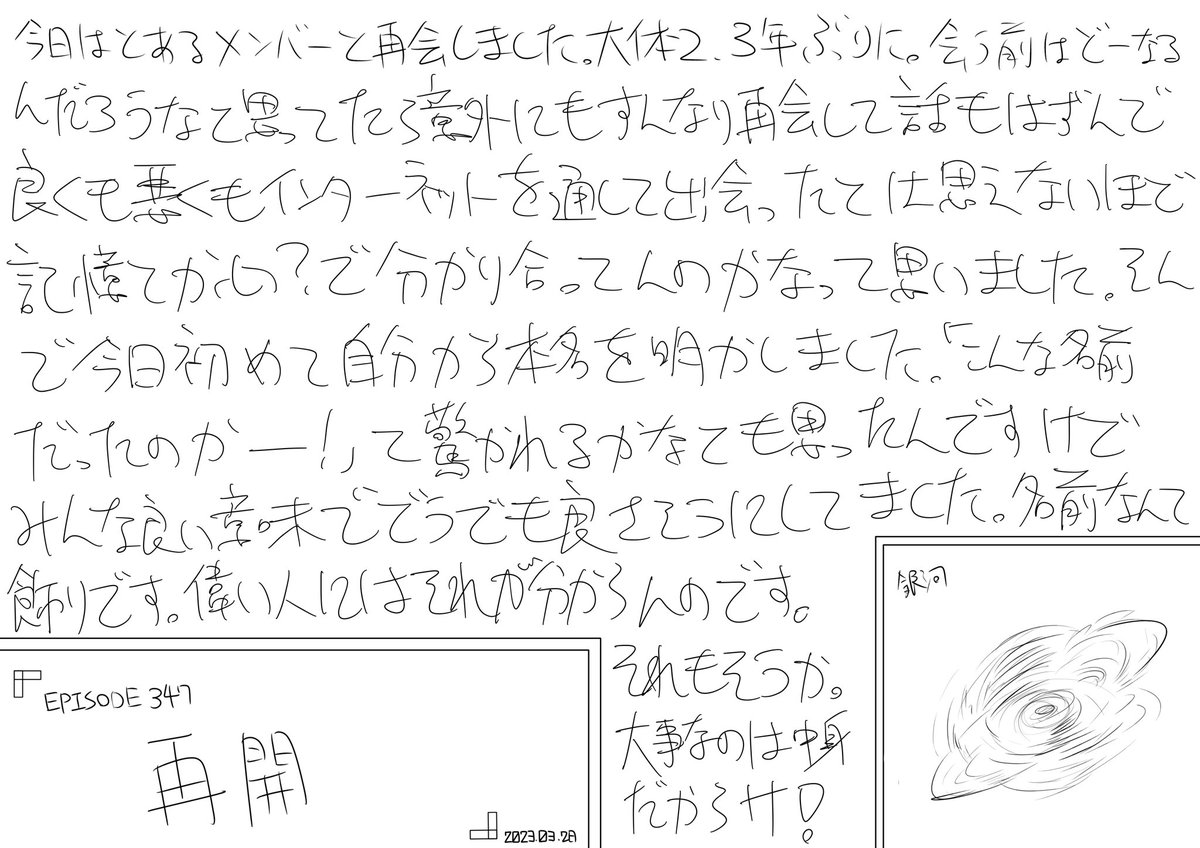 今日はとあるメンバーと再会しました。大体2、3年ぶりに。会う前はどーなる
んだろうなて思ってたら意外にもすんなり再会して話もはずんで
良くも悪くもインターネットを通して出会ったては思えないほで
記憶てか心？で分かり合ってんのかなって思いました。そん
で今日初めて自分から本名を明かしました。「こんな名前
だったのかー！」て驚かれるかなても思ったんですけで
みんな良い意味でどうでも良さそうにしてました。名前なんて
飾りです。偉い人にはそれが分からんのです。
それもそうか。
大事なのは中身
だからサ！
EPISODE 347
再開
2023.03.28
銀河